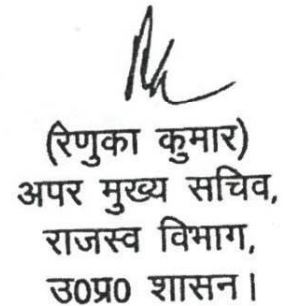 (रेणुका कुमार)
अपर मुख्य सचिव,
राजस्व विभाग,
उ0प्र0 शासन।